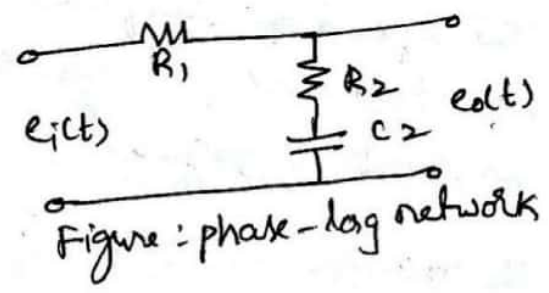 R1
R2
eo(t)
ei(t)
C2
Figure : phase-lag network